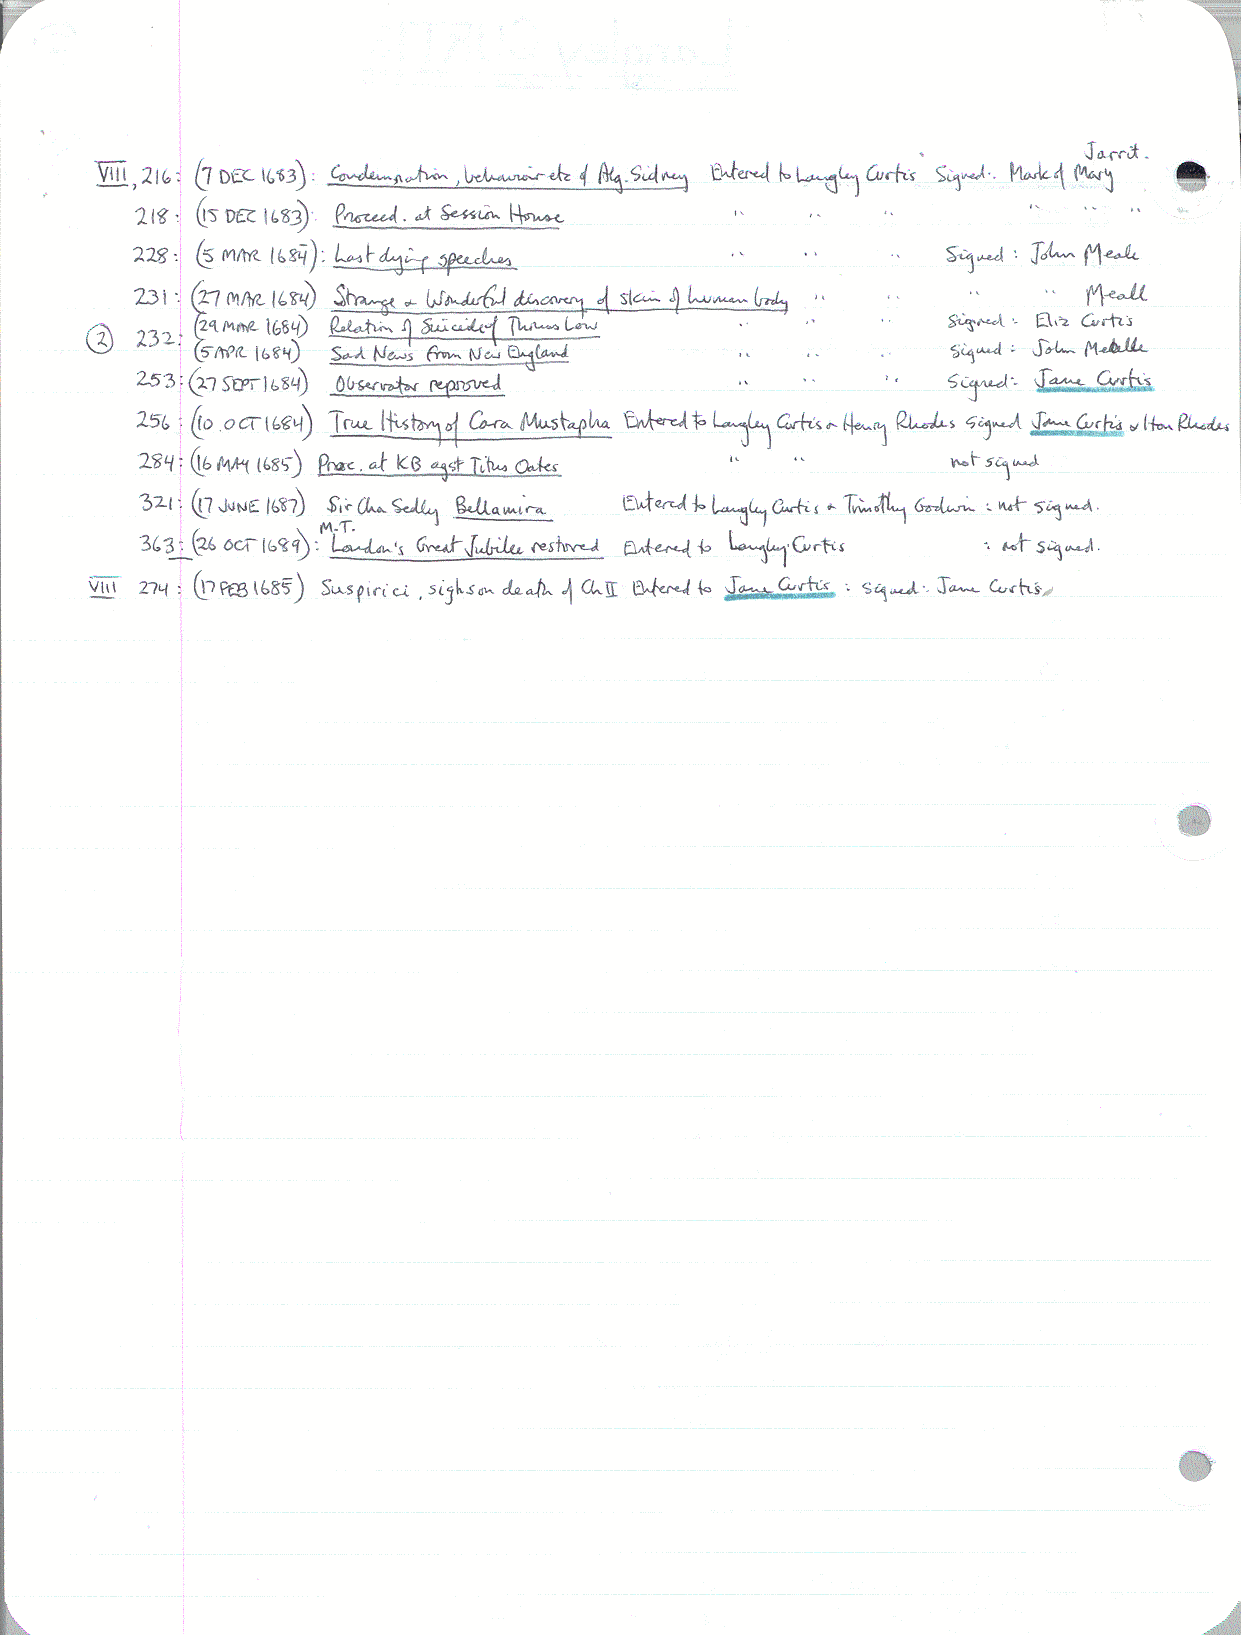 Jarrit.
VIII, 216: (7 DEC 1683): Condemnation, behaviour etc of Alg. Sidney Entered to Langley Curtis Signed: Mark of Mary
218: (15 DEC 1683): Proceed. at Session House " " " " " "
228: (5 MAR 1684): Last dying speeches " " " Signed: John Meale
231: (27 MAR 1684) Strange & Wonderful discovery of skin of human body " " " " " Meall
(29 MAR 1684) Relation of Suicide of Thomas Low " " " Signed: Eliz Curtis
② 232:
(5 APR 1684) Sad News from New England " " " Signed: John
253: (27 SEPT 1684) Observator reproved " " " Signed: Jane Curtis
256: (10 OCT 1684) True History of Cara Mustapha Entered to Langley Curtis & Henry Rhodes Signed Jane Curtis & Hen Rhodes
284: (16 MAY 1685) Proc. at KB agst Titus Oates " " not signed
321: (17 JUNE 1687) Sir Cha Sedly Bellamira Entered to Langley Curtis & Timothy Godwin: not signed.
M.T.
363: (26 OCT 1689): London's Great Jubilee restored Entered to Langley Curtis : not signed.
VIII 274: (17 FEB 1685) Suspirici, sighs on death of Ch II Entered to Jane Curtis: signed: Jane Curtis